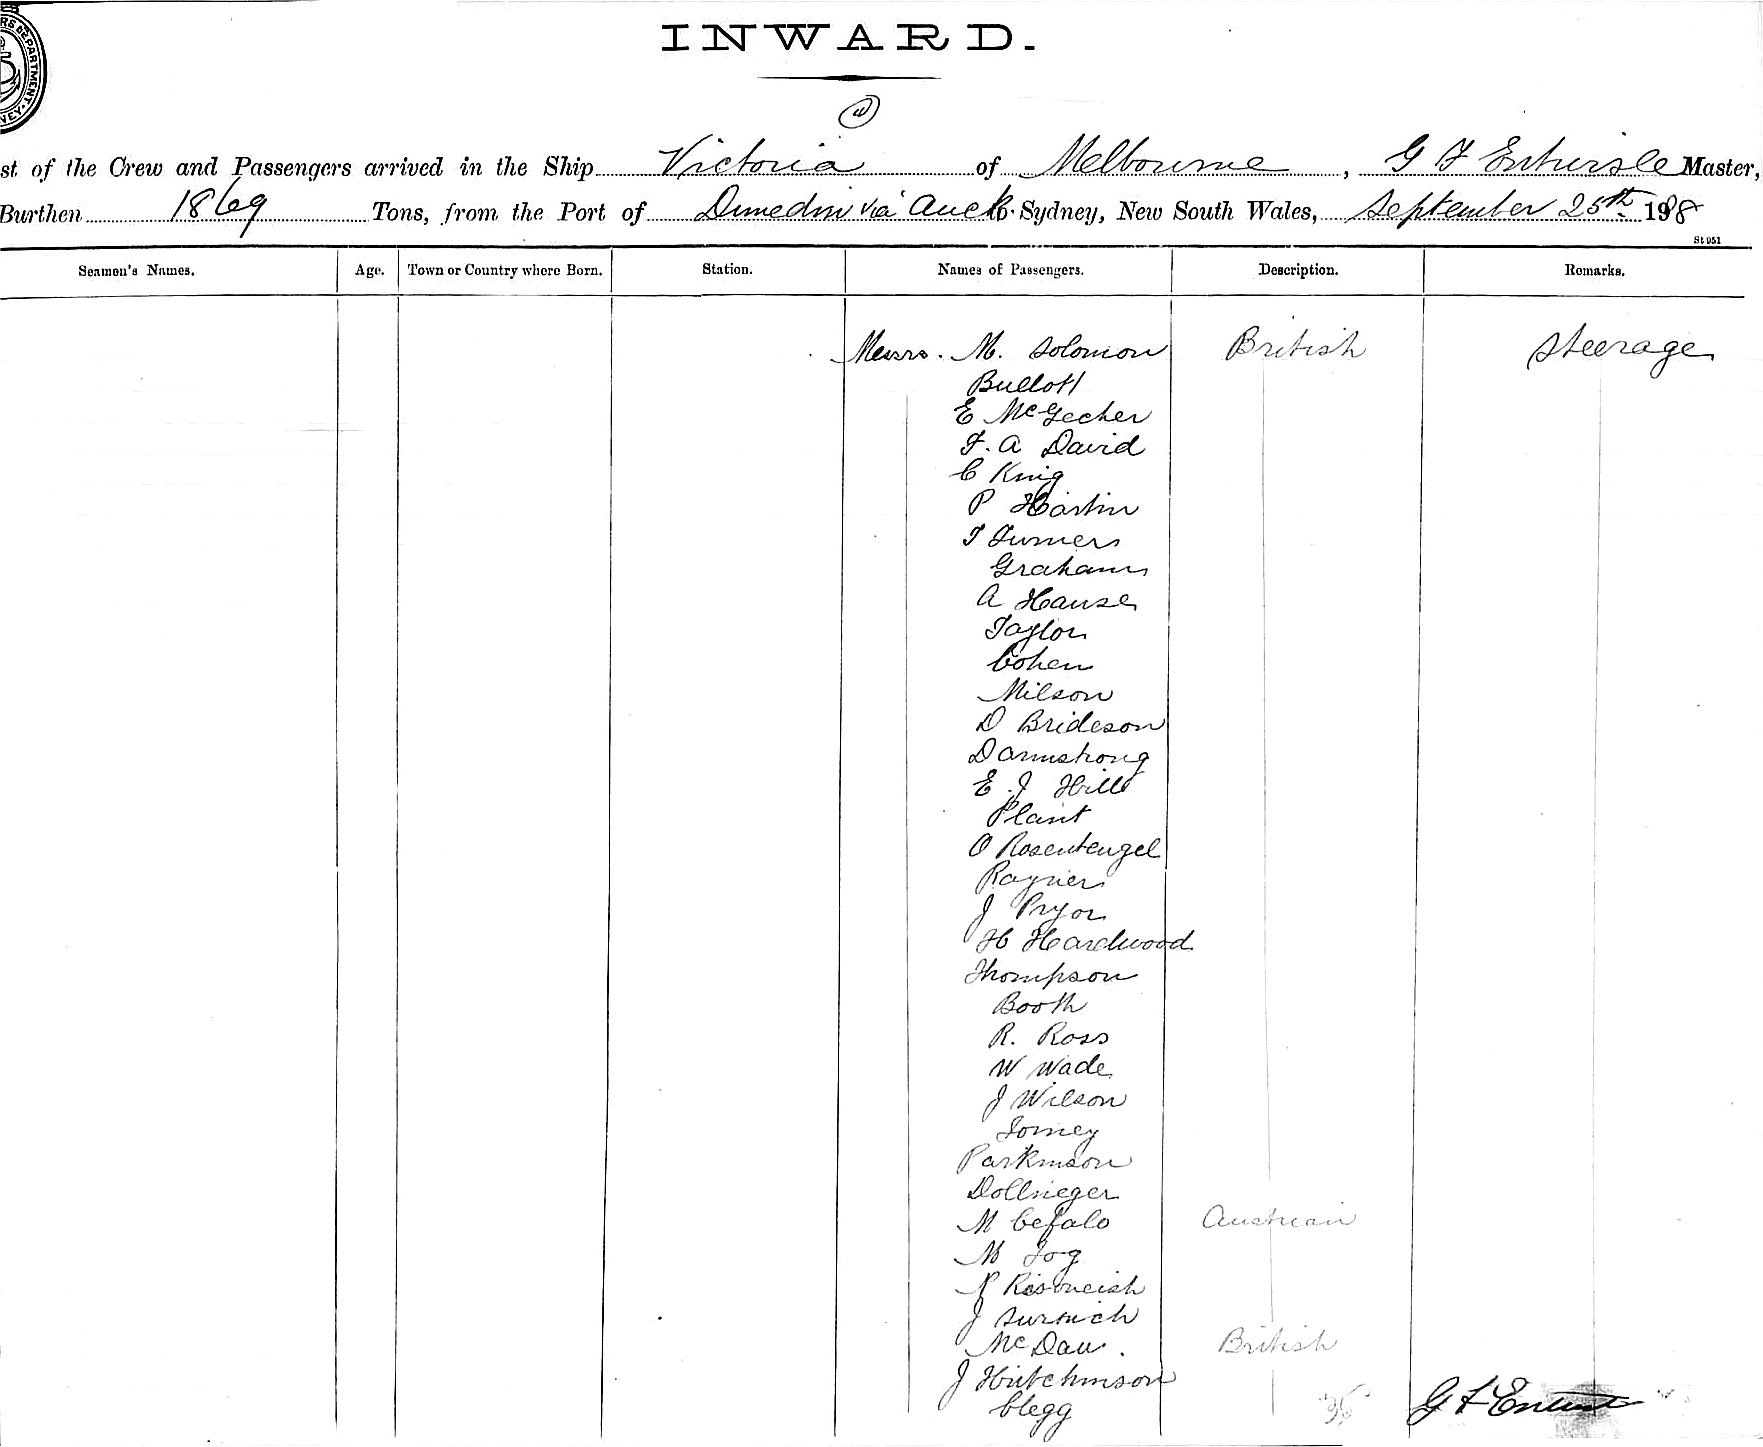 INWARD.
st of the Crew and Passengers arrived in the Ship Victoria of Melbourne, G F Entwisle Master,
Burthen 1869 Tons, from the Port of Dunedin via Auck to Sydney, New South Wales, September 25th 198
St 951
Seamen's Names. Age. Town or Country where Born. Station. Names of Passengers. Description. Remarks.
Messrs. M. Solomon British Steerage
Bullott
E McGecher
F. A David
C King
P Hartin
T Turner
Graham
A Hause
Taylor
Cohen
Milson
D Brideson
D Armstrong
E. J Hill
Plant
O Rosentengel
Rayner
J Pryor
H Hardwood
Thompson
Booth
R. Ross
W Wade
J Wilson
Torney
Parkinson
Dollineger
M Cefalo Austrian
M Jog
J
McDau. British
J Hutchinson
Clegg
G F